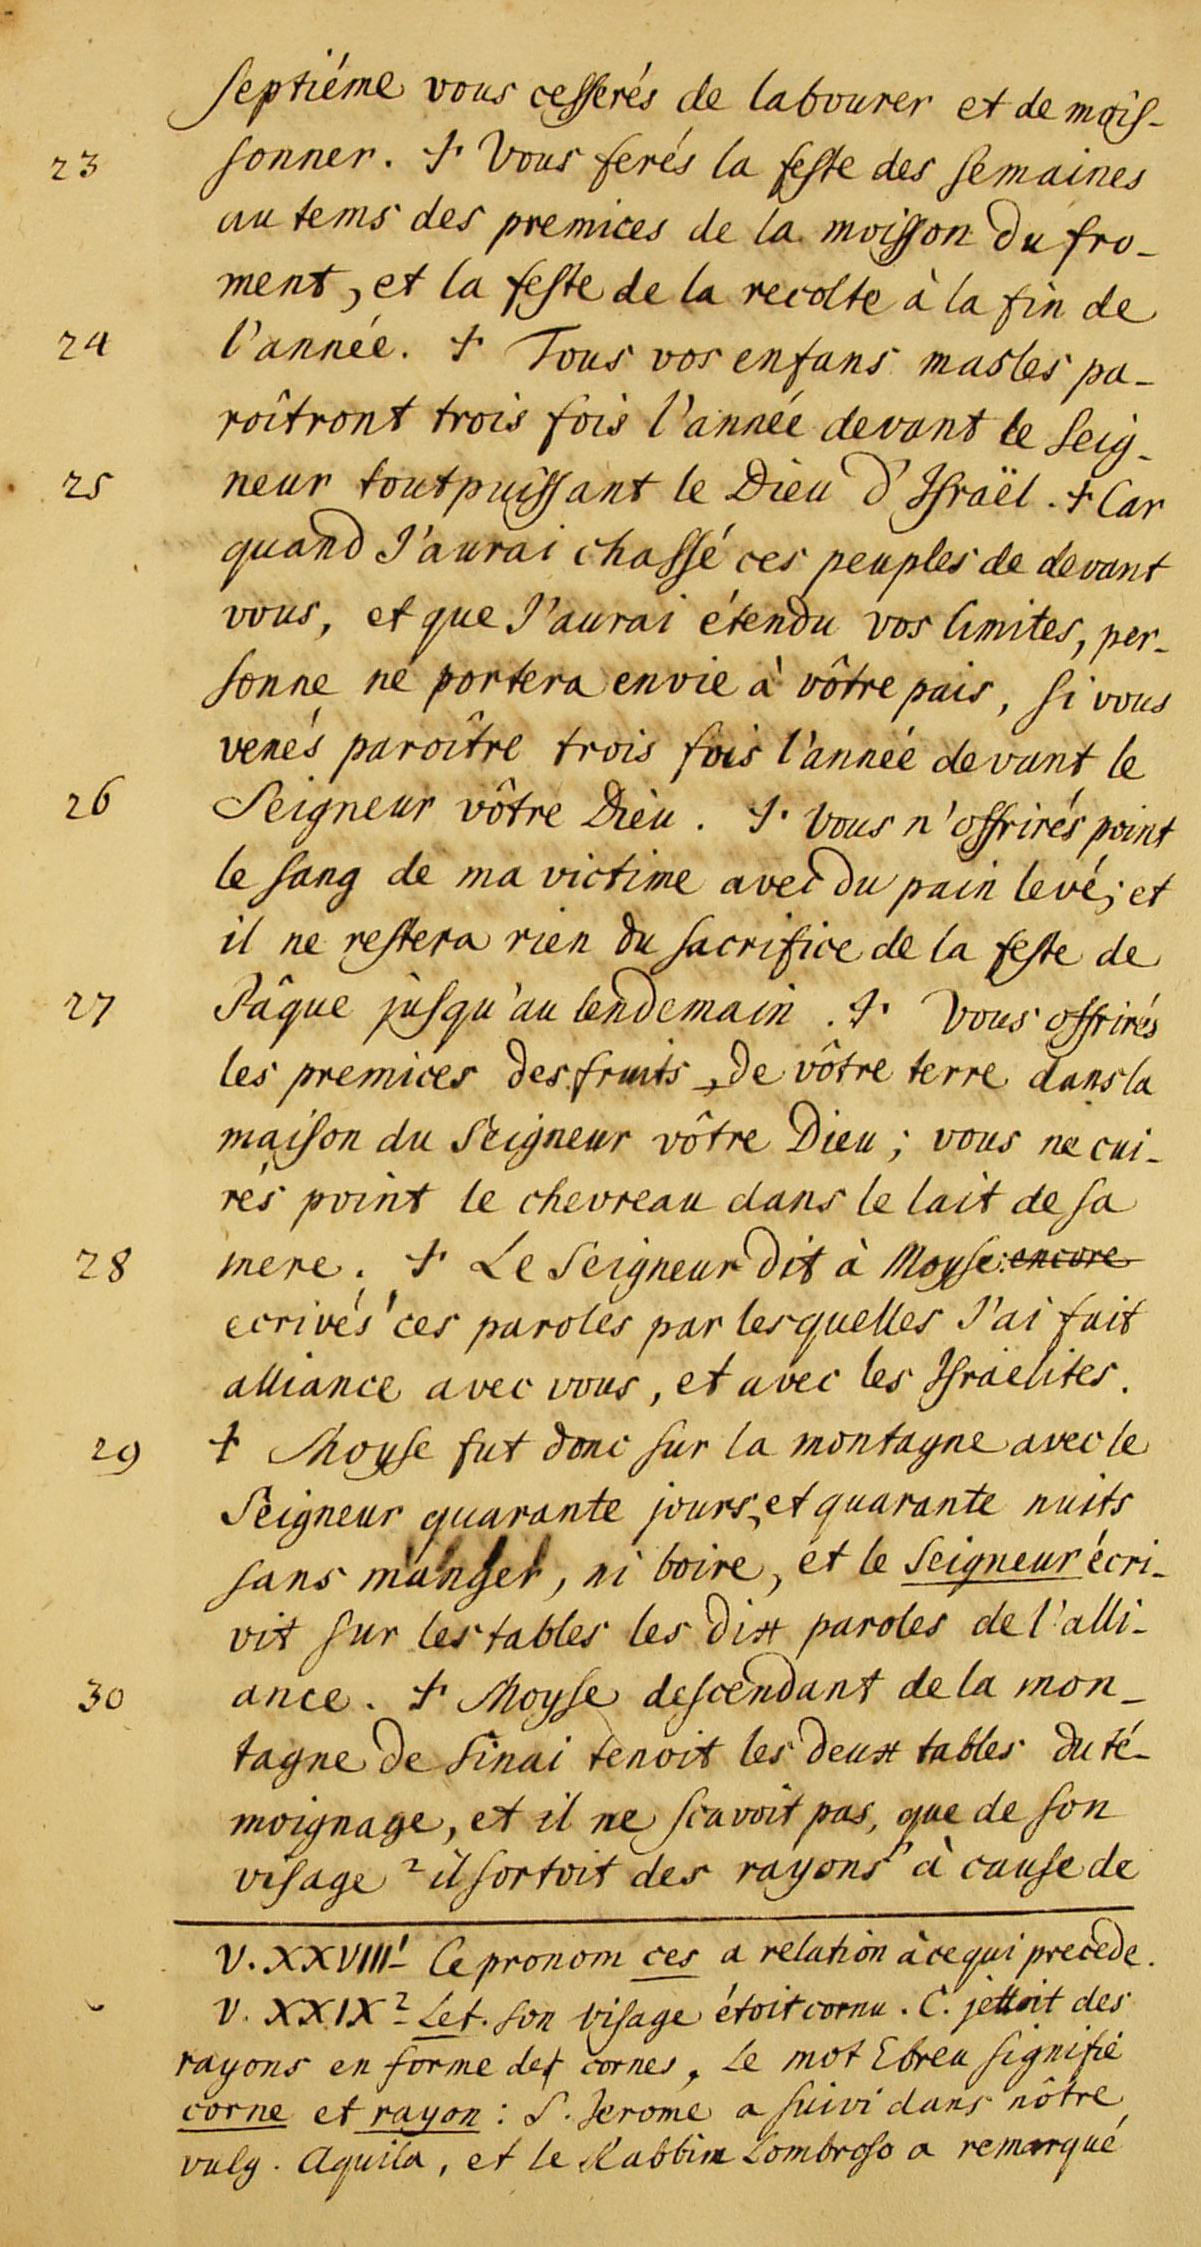 septiéme vous cesserés de labourer et de mois-
23 sonner. + Vous ferés la feste des semaines
au tems des premices de la moisson du fro-
ment, et la feste de la recolte à la fin de
24 l'année. + Tous vos enfans masles pa-
roîtront trois fois l'année devant le Seig-
25 neur toutpuissant le Dieu d'Israël. + Car
quand J'aurai chassé ces peuples de devant
vous, et que J'aurai étendu vos limites, per-
sonne ne portera envie à vôtre pais, si vous
venés paroître trois fois l'année devant le
26 Seigneur vôtre Dieu. + Vous n'offrirés point
le sang de ma victime avec du pain levé; et
il ne restera rien du sacrifice de la feste de
27 Pâque jusqu'au lendemain. + Vous offrirés
les premices des fruits de vôtre terre dans la
maison du Seigneur vôtre Dieu; vous ne cui-
rés point le chevreau dans le lait de sa
28 mere. + Le Seigneur dit à Moyse: encore
ecrivés ' ces paroles par lesquelles J'ai fait
alliance avec vous, et avec les Israelites.
29 + Moyse fut donc sur la montagne avec le
Seigneur quarante jours, et quarante nuits
sans manger, ni boire, et le Seigneur écri-
vit sur les tables les dix paroles de l'alli-
30 ance. + Moyse descendant de la mon-
tagne de Sinai tenoit les deux tables du té-
moignage, et il ne scavoit pas, que de son
visage 2 il sortoit des rayons à cause de
V. XXVIII 1 Ce pronom ces a relation à ce qui precede.
V. XXIX 2 Let. son visage étoit cornu. C. jettoit des
rayons en forme de cornes, Le mot Ebreu signifie
corne et rayon: S. Jerome a suivi dans nôtre
vulg. Aquila, et le Rabbin Lombroso a remarqué